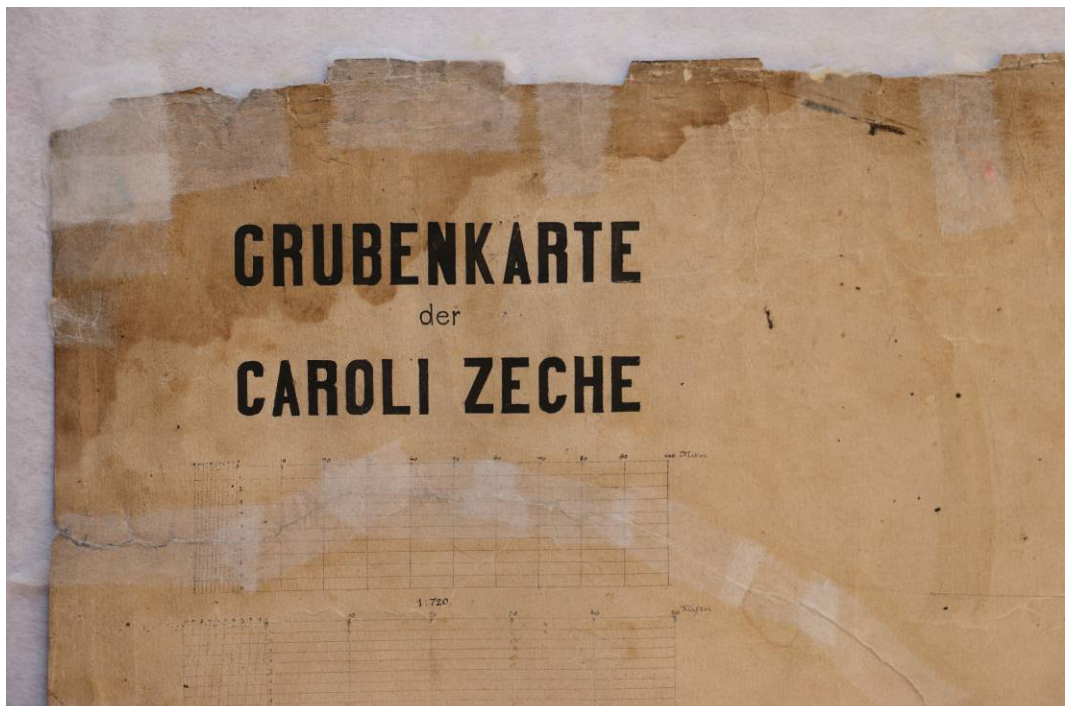 GRUBENKARTE
der
CAROLI ZECHE
10 20 40 50 60 70 80 90 100 Meter
1:720
10 20 30 40 50 Klafter